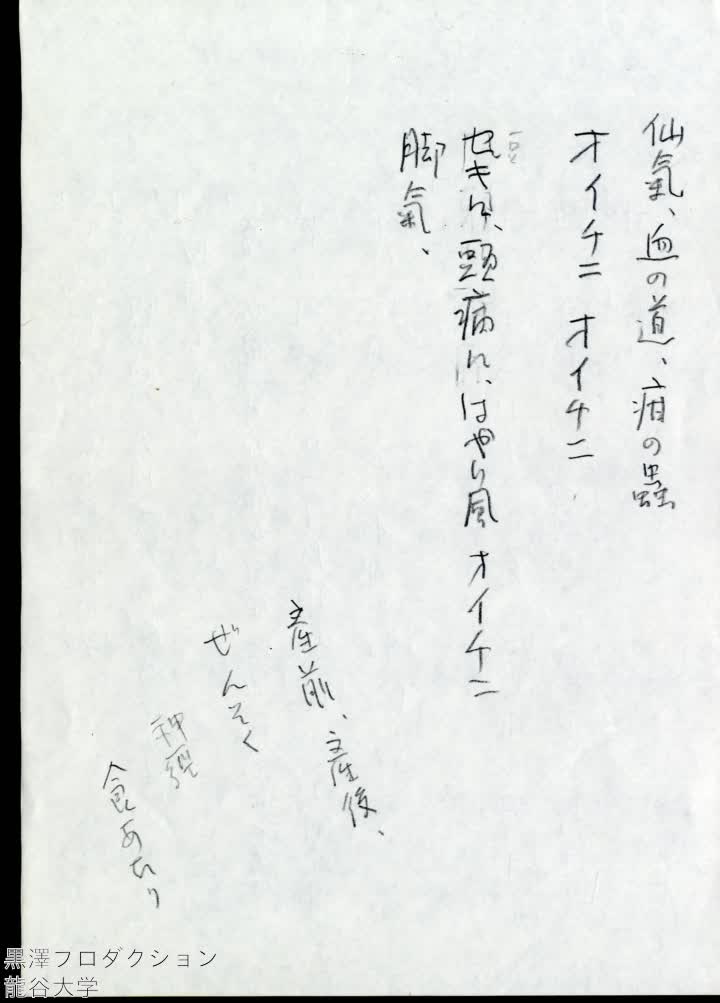 仙氣、血の道、疳の蟲
オイチニ オイチニ
せき、頭病み、はやり風 オイチニ
脚氣、
産前、産後、
ぜんそく
神經
食あたり
黒澤プロダクション
龍谷大学